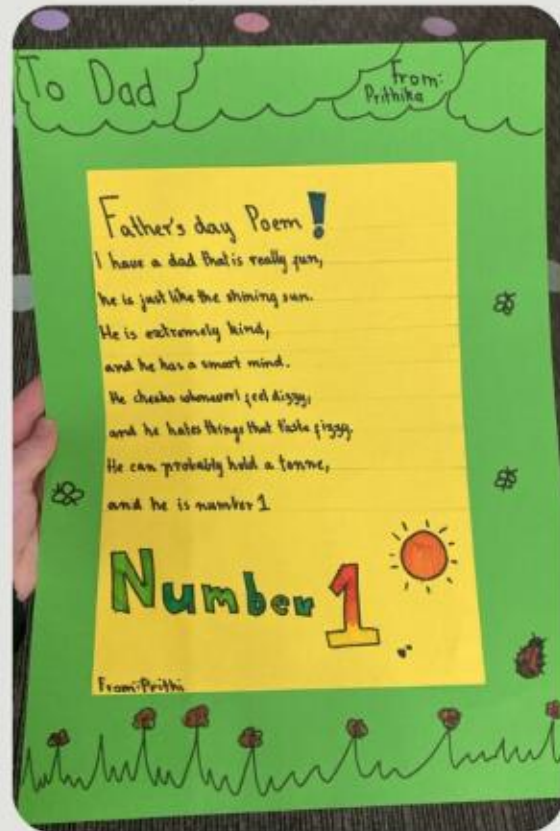 To Dad
From:
Prithika
Father's day Poem!
I have a dad that is really fun,
he is just like the shining sun.
He is extremely kind,
and he has a smart mind.
He cheaks whenever I feel dizzy,
and he hates things that taste fizzy.
He can probably hold a tonne,
and he is number 1
Number 1
From: Prithi